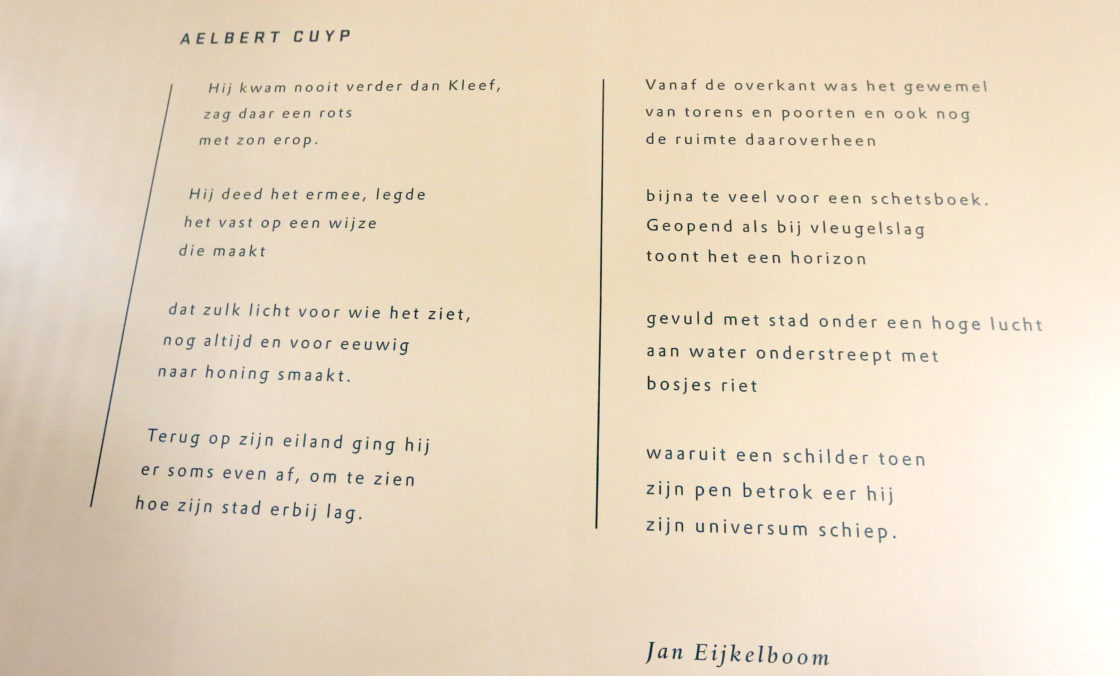 AELBERT CUYP
Hij kwam nooit verder dan Kleef,
zag daar een rots
met zon erop.
Hij deed het ermee, legde
het vast op een wijze
die maakt
dat zulk licht voor wie het ziet,
nog altijd en voor eeuwig
naar honing smaakt.
Terug op zijn eiland ging hij
er soms even af, om te zien
hoe zijn stad erbij lag.
Vanaf de overkant was het gewemel
van torens en poorten en ook nog
de ruimte daaroverheen
bijna te veel voor een schetsboek.
Geopend als bij vleugelslag
toont het een horizon
gevuld met stad onder een hoge lucht
aan water onderstreept met
bosjes riet
waaruit een schilder toen
zijn pen betrok eer hij
zijn universum schiep.
Jan Eijkelboom